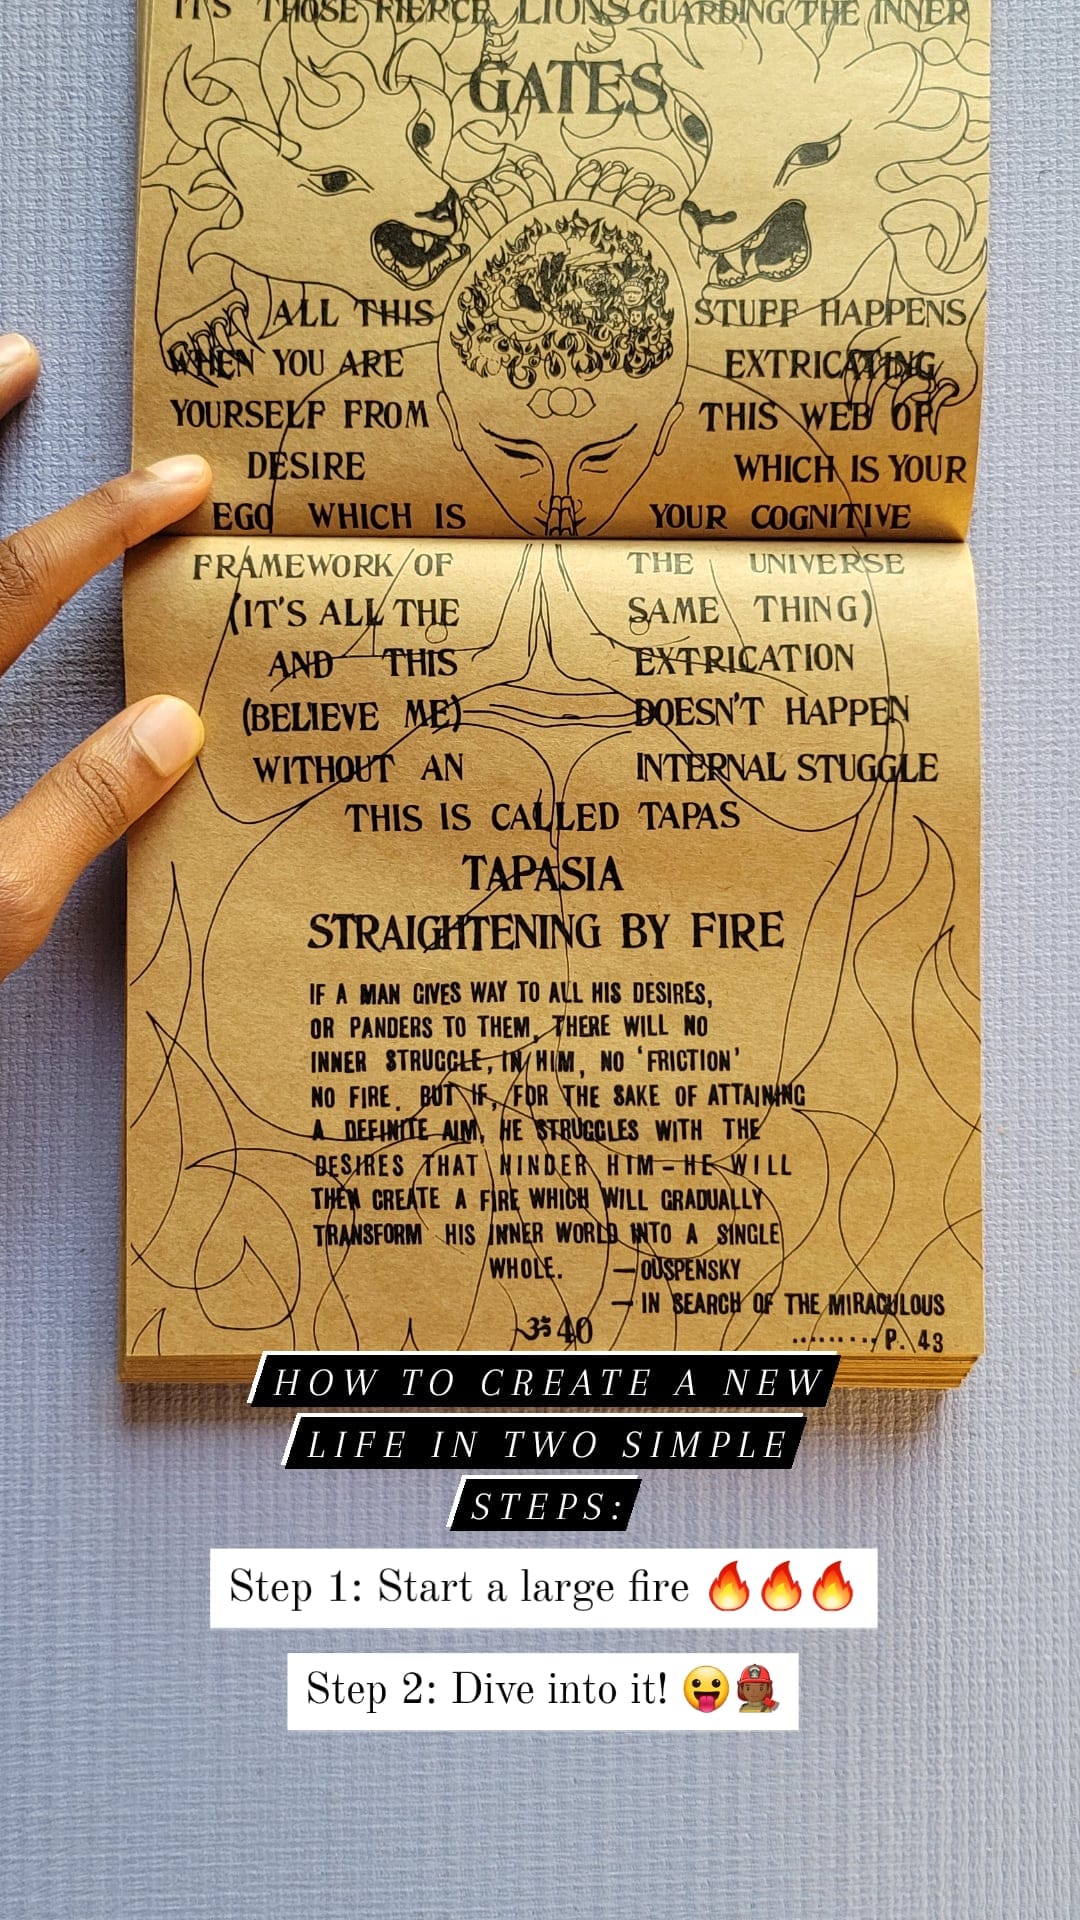 IT'S THOSE FIERCE LIONS GUARDING THE INNER
GATES
ALL THIS STUFF HAPPENS
WHEN YOU ARE EXTRICATING
YOURSELF FROM THIS WEB OF
DESIRE WHICH IS YOUR
EGO WHICH IS YOUR COGNITIVE
FRAMEWORK OF THE UNIVERSE
(IT'S ALL THE SAME THING)
AND THIS EXTRICATION
(BELIEVE ME) DOESN'T HAPPEN
WITHOUT AN INTERNAL STUGGLE
THIS IS CALLED TAPAS
TAPASIA
STRAIGHTENING BY FIRE
IF A MAN GIVES WAY TO ALL HIS DESIRES,
OR PANDERS TO THEM, THERE WILL NO
INNER STRUGGLE, IN HIM, NO 'FRICTION'
NO FIRE. BUT IF, FOR THE SAKE OF ATTAINING
A DEFINITE AIM, HE STRUGGLES WITH THE
DESIRES THAT HINDER HIM - HE WILL
THEN CREATE A FIRE WHICH WILL GRADUALLY
TRANSFORM HIS INNER WORLD INTO A SINGLE
WHOLE. — OUSPENSKY
— IN SEARCH OF THE MIRACULOUS
ॐ 40
......... P. 43
HOW TO CREATE A NEW
LIFE IN TWO SIMPLE
STEPS:
Step 1: Start a large fire 🔥🔥🔥
Step 2: Dive into it! 😛👩🏾‍🚒